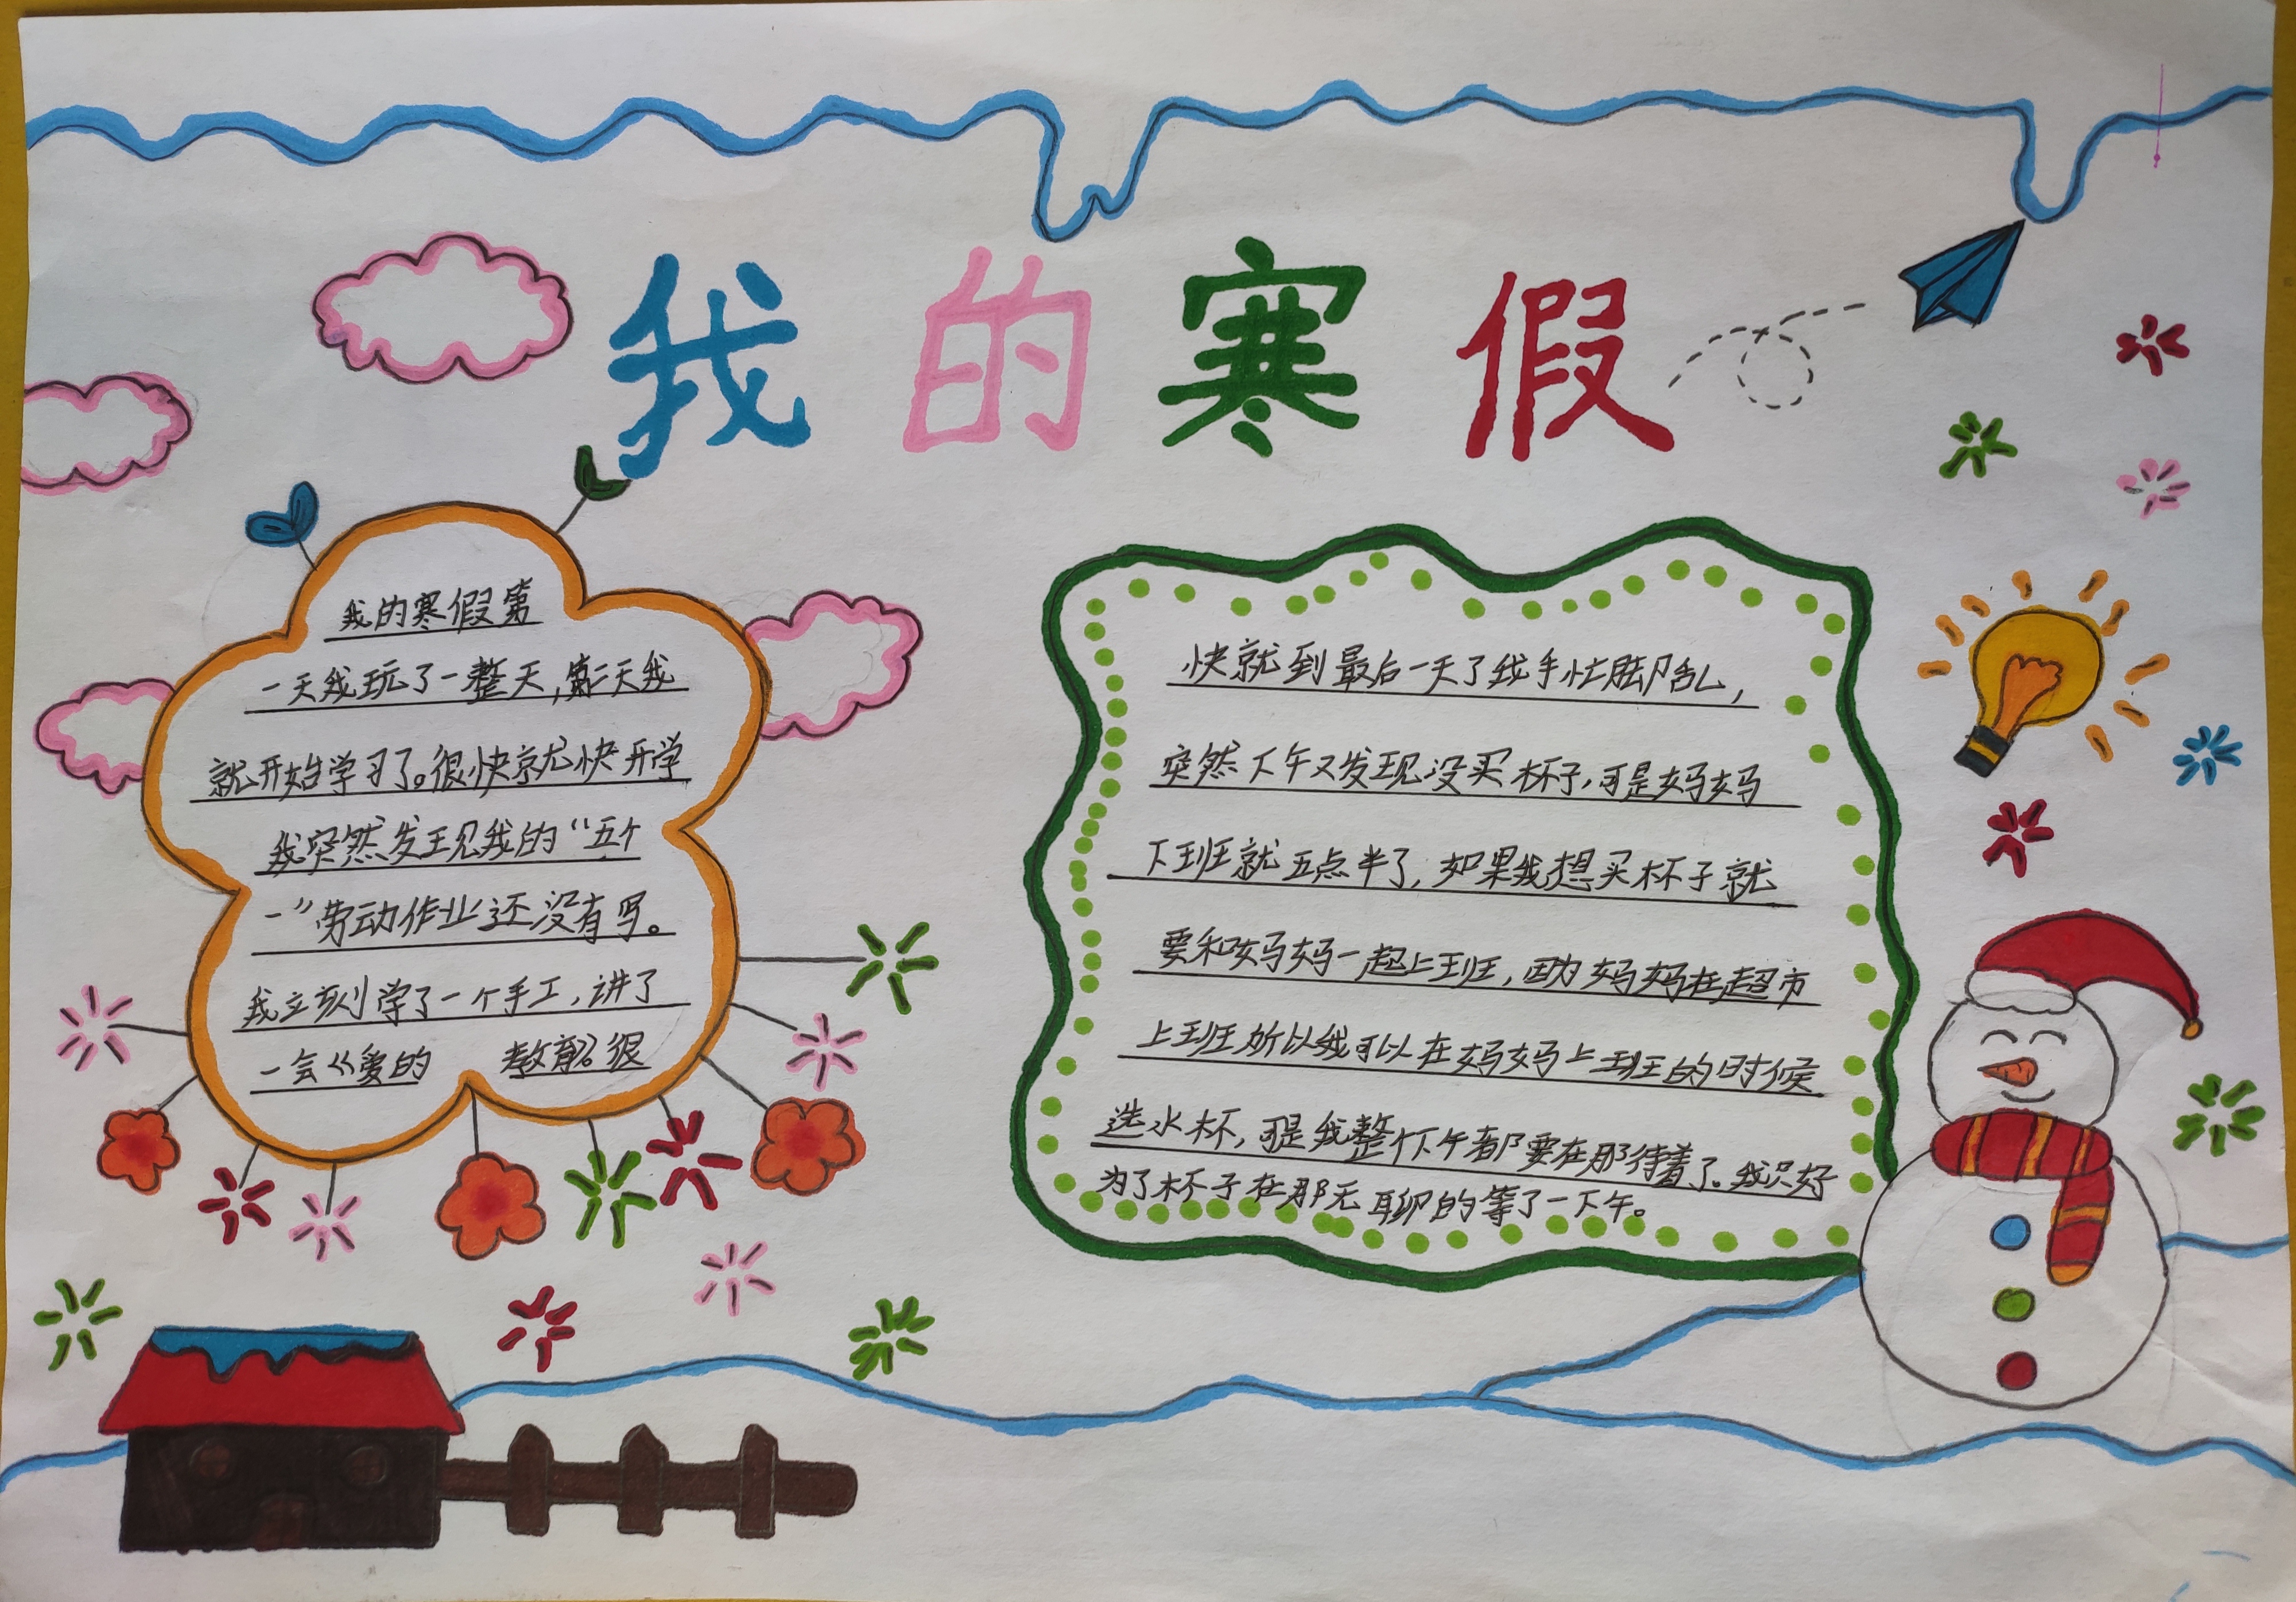 我的寒假
我的寒假第
一天我玩了一整天,第二天我
就开始学习了。很快就快开学
我突然发现我的“五个
一”劳动作业还没有写。
我立刻学了一个手工,讲了
一会《爱的 教育》。很
快就到最后一天了我手忙脚乱,
突然下午又发现没买杯子,可是妈妈
下班就五点半了,如果我想买杯子就
要和妈妈一起上班,因为妈妈在超市
上班所以我可以在妈妈上班的时候
选水杯,可是我整个下午都要在那待着了。我只好
为了杯子在那无聊的等了一下午。